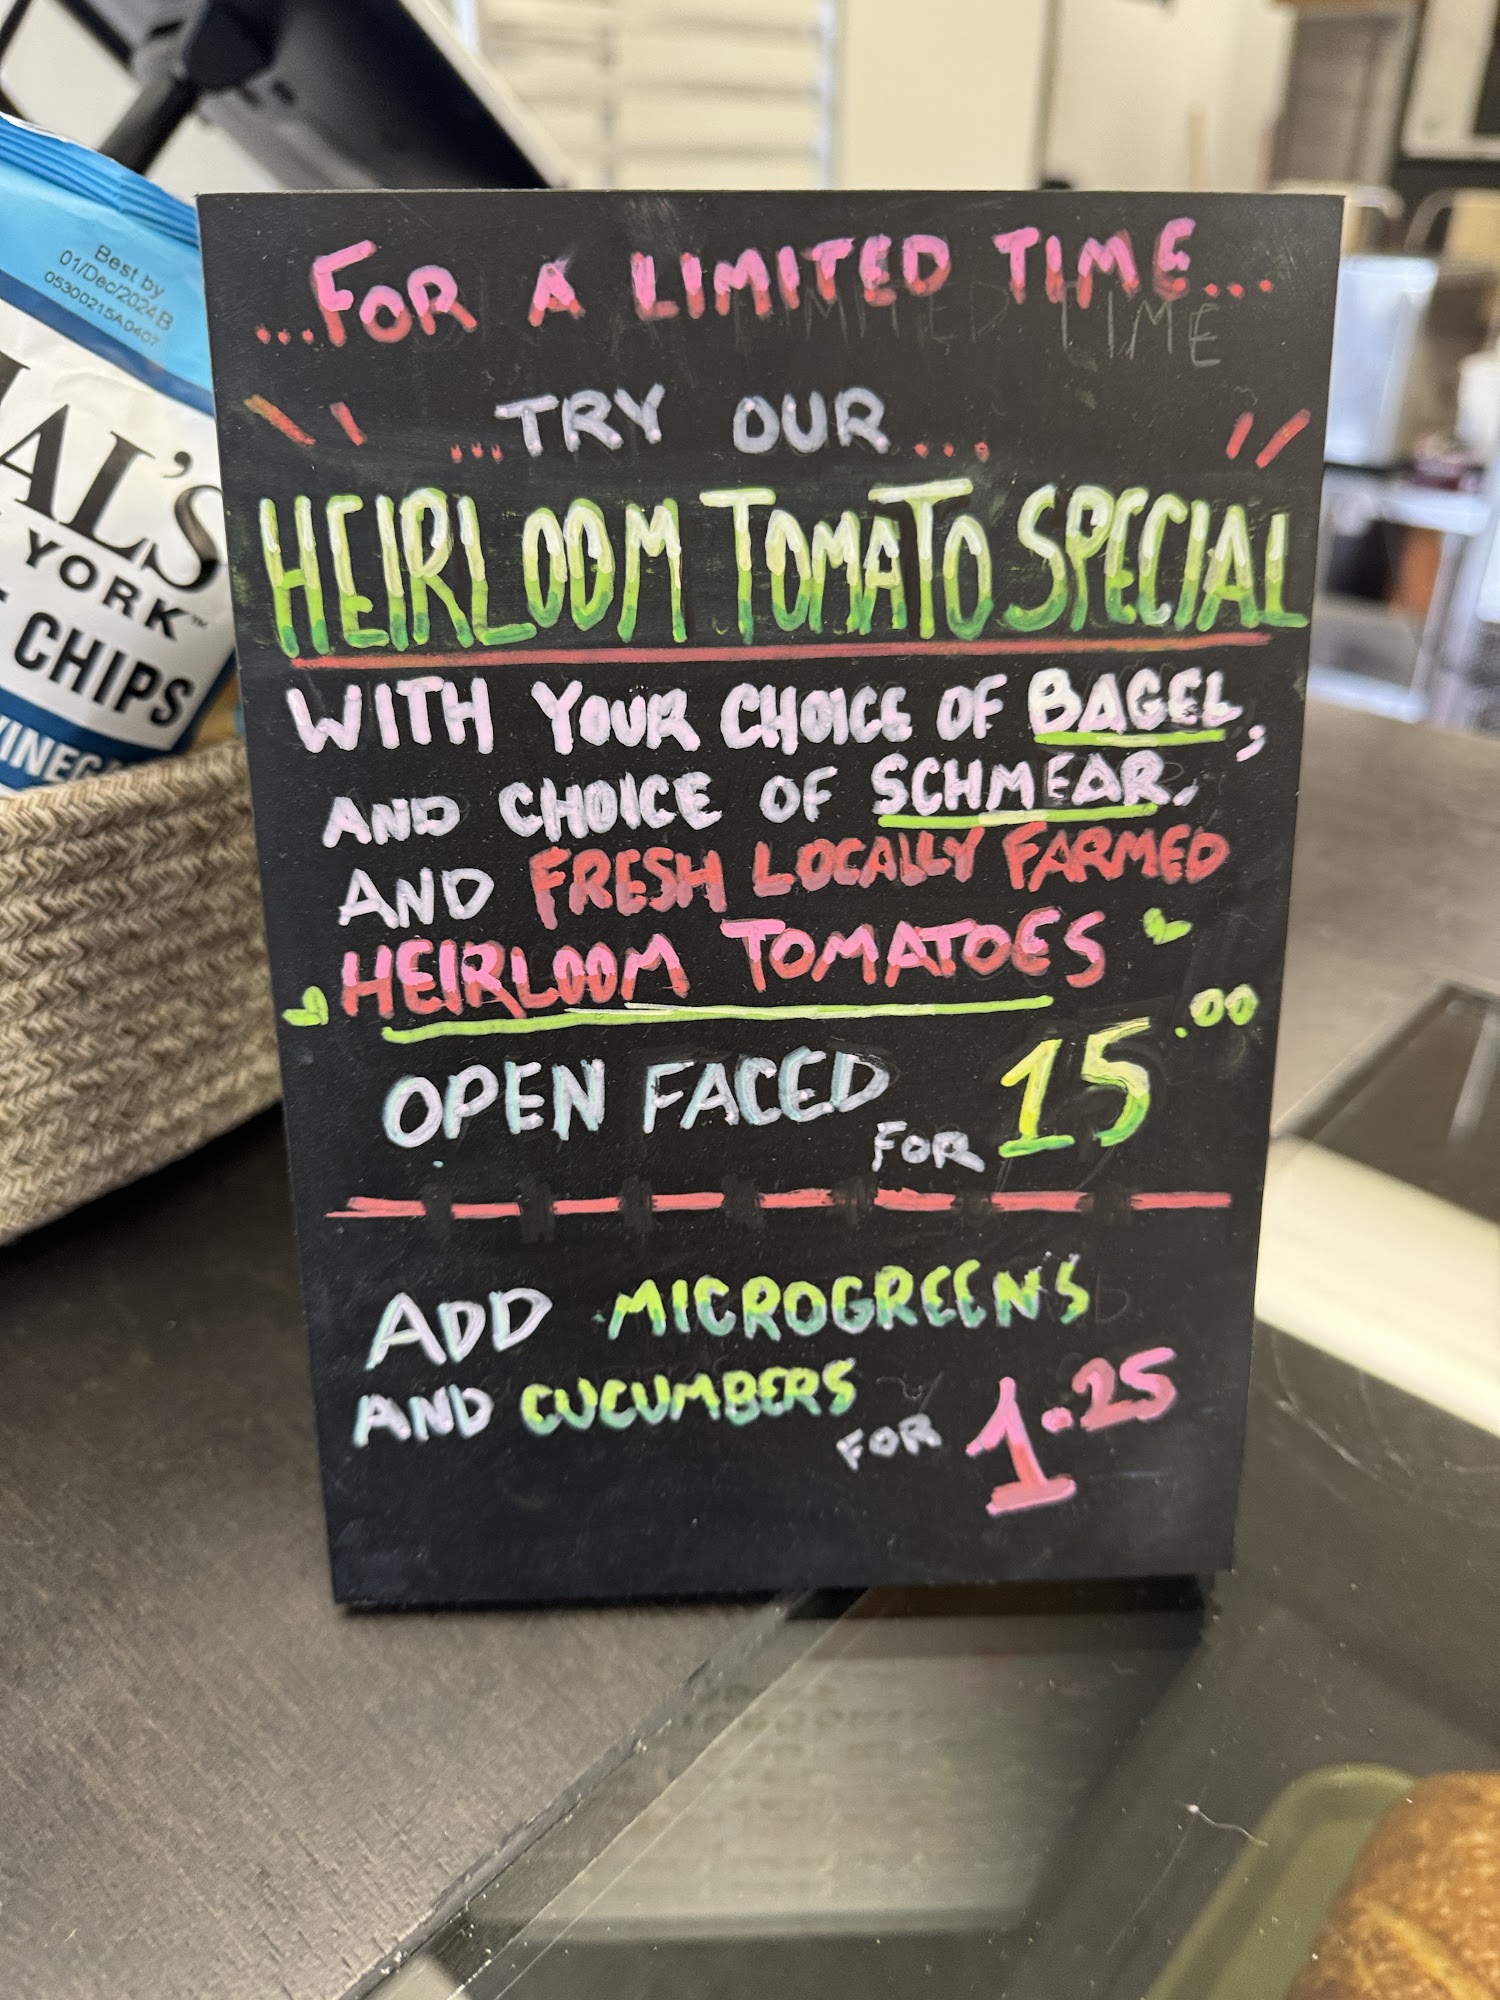 Best by
01/Dec/2024B
05300215A0407
HAL'S
YORK™
CHIPS
VINEGA
...FOR A LIMITED TIME...
...TRY OUR...
HEIRLOOM TOMATO SPECIAL
WITH YOUR CHOICE OF BAGEL,
AND CHOICE OF SCHMEAR,
AND FRESH LOCALLY FARMED
HEIRLOOM TOMATOES
OPEN FACED FOR 15.00
ADD MICROGREENS
AND CUCUMBERS FOR 1.25